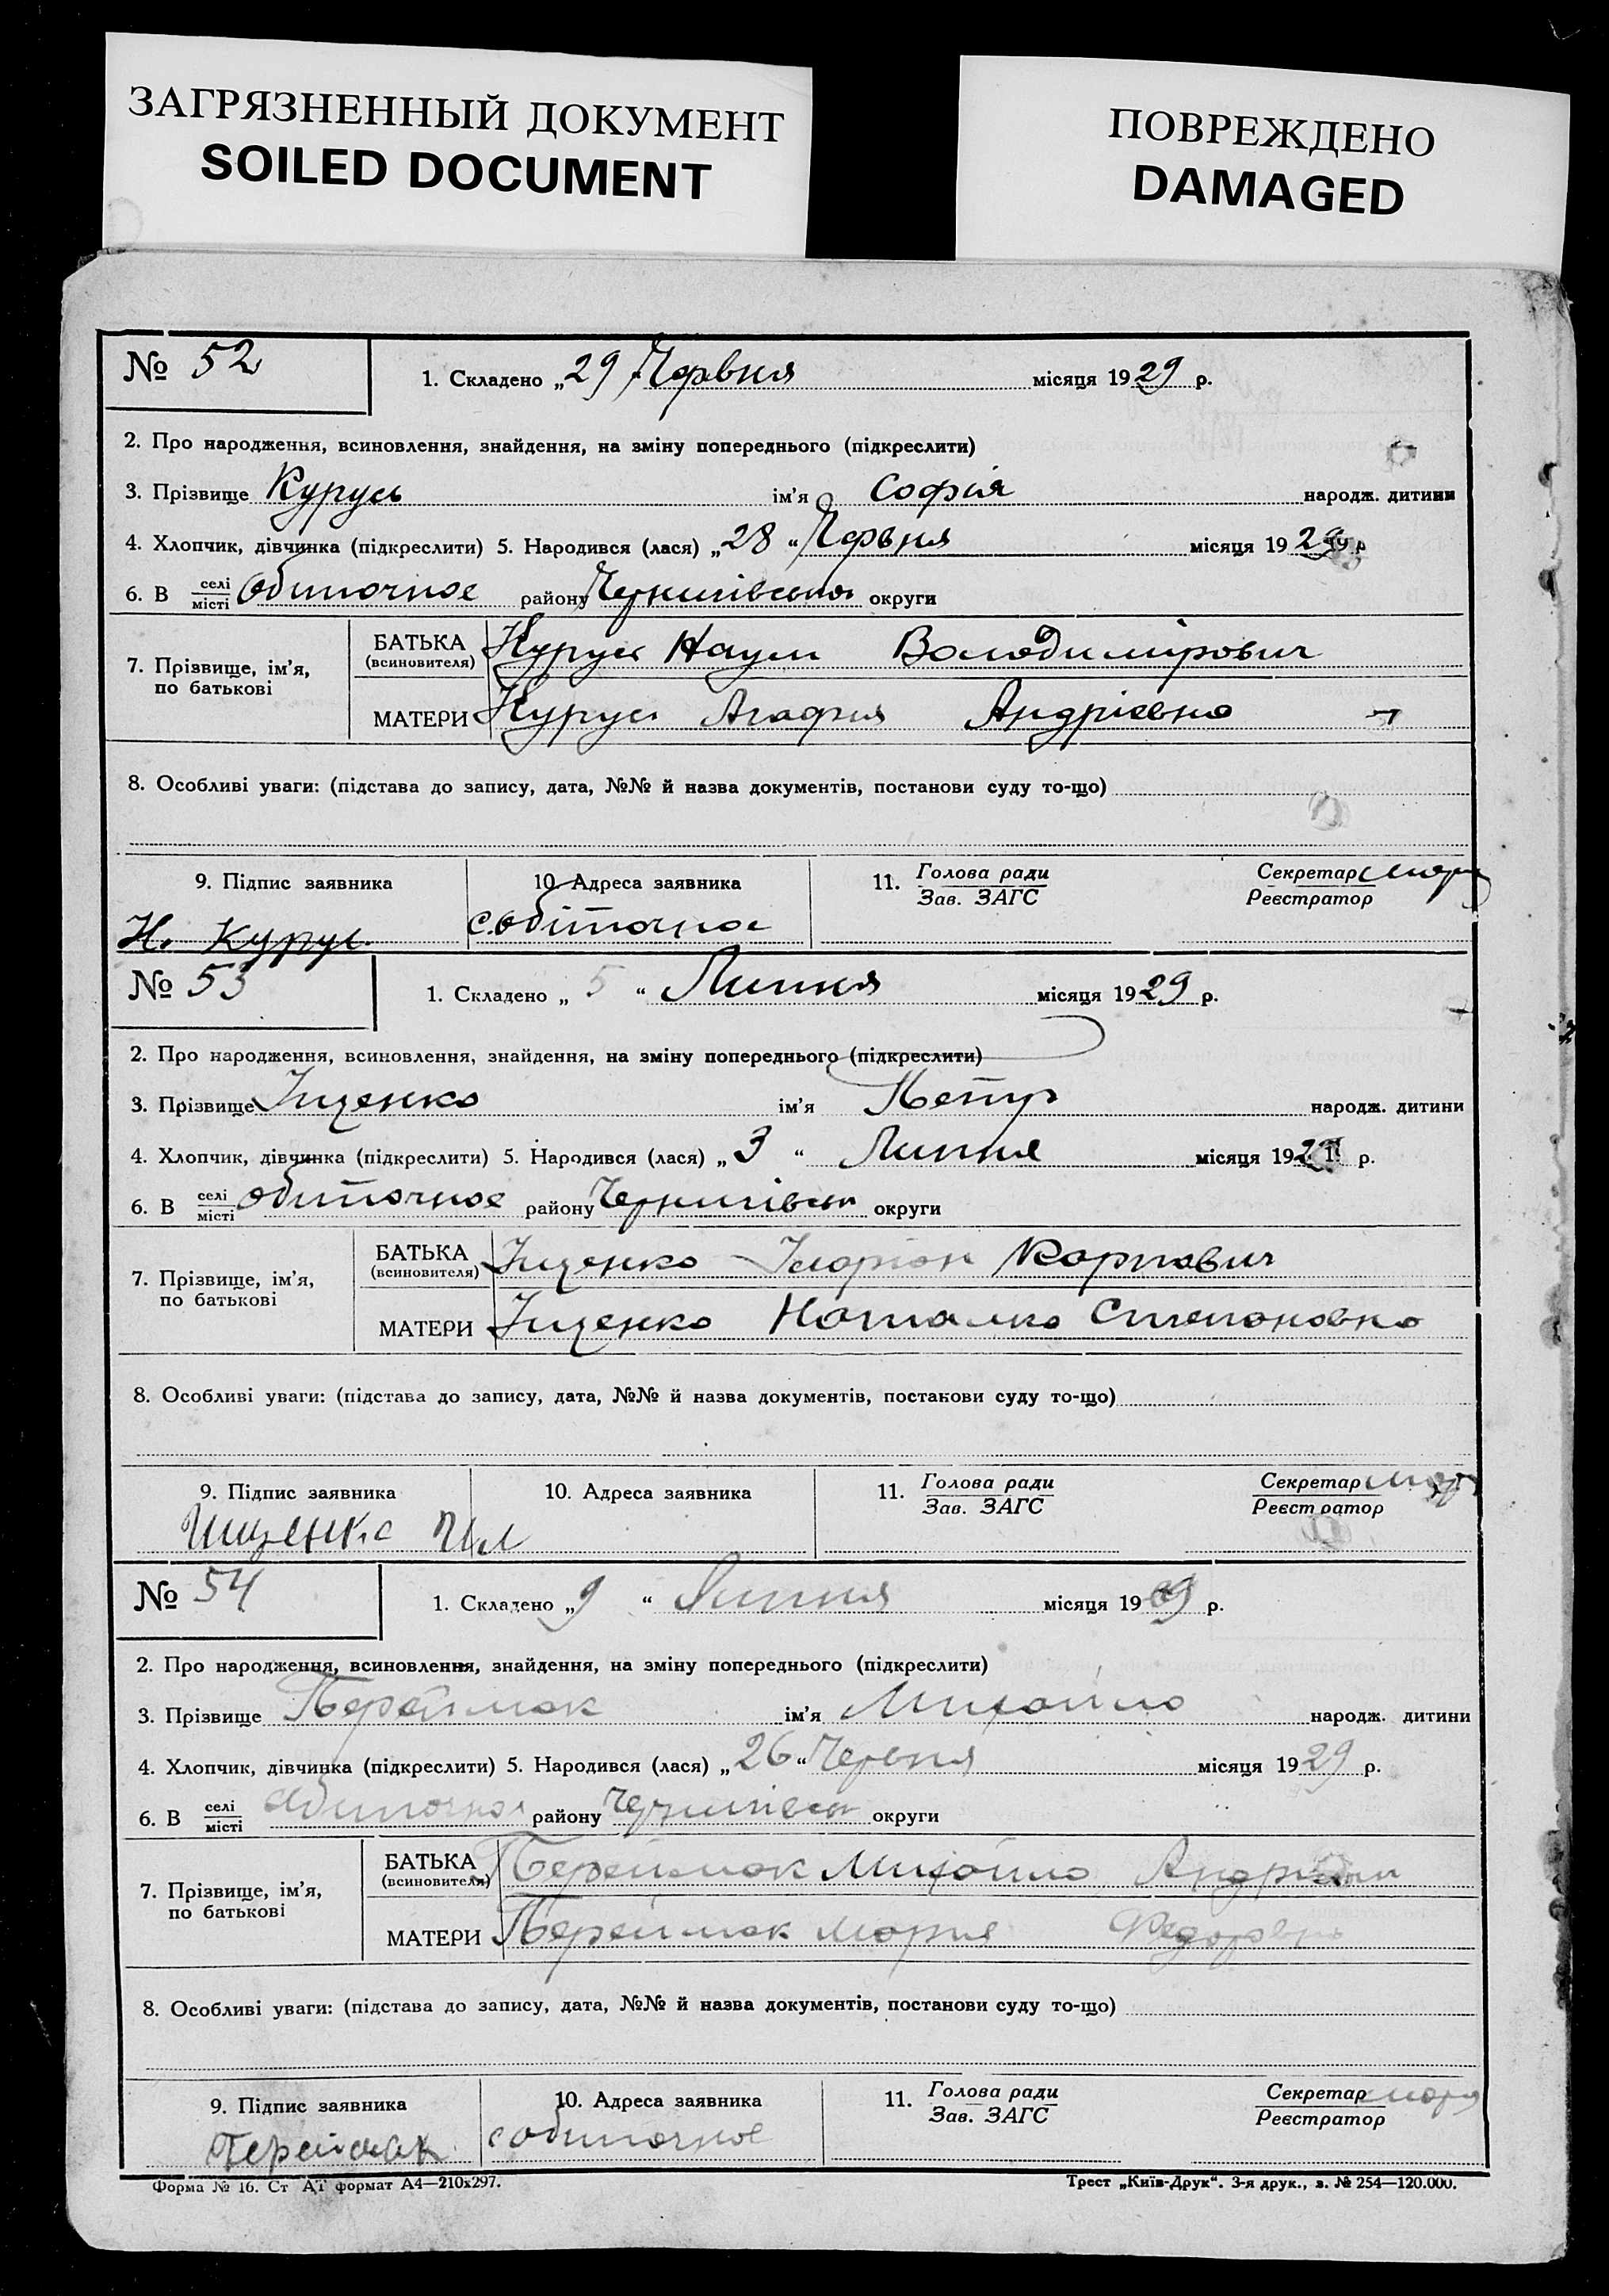 ЗАГРЯЗНЕННЫЙ ДОКУМЕНТ
SOILED DOCUMENT
ПОВРЕЖДЕНО
DAMAGED
№ 52
1. Складено „29 Червня місяця 1929 р.
2. Про народження, всиновлення, знайдення, на зміну попереднього (підкреслити)
3. Прізвище Курусь ім'я Софія народж. дитини
4. Хлопчик, дівчинка (підкреслити) 5. Народився (лася) „28 “ Червня місяця 1929 р
6. В селі місті Обиточное району Чернигівська округи
7. Прізвище, ім'я, по батькові
БАТЬКА (всиновителя) Курусь Наум Володимірович
МАТЕРИ Курусь Агафия Андрієвна
8. Особливі уваги: (підстава до запису, дата, №№ й назва документів, постанови суду то-що)
9. Підпис заявника
10. Адреса заявника
11. Голова ради Зав. ЗАГС
Секретар Реєстратор
Н. Курус
с. Обиточное
№ 53
1. Складено „ 5 “ Липня місяця 1929 р.
2. Про народження, всиновлення, знайдення, на зміну попереднього (підкреслити)
3. Прізвище Іщенко ім'я Петур народж. дитини
4. Хлопчик, дівчинка (підкреслити) 5. Народився (лася) „ 3 “ Липня місяця 192 р.
6. В селі місті Обиточное району Чернигівськ округи
7. Прізвище, ім'я, по батькові
БАТЬКА (всиновителя) Іщенко Іларіон Карпович
МАТЕРИ Іщенко Наталка Степановна
8. Особливі уваги: (підстава до запису, дата, №№ й назва документів, постанови суду то-що)
9. Підпис заявника
10. Адреса заявника
11. Голова ради Зав. ЗАГС
Секретар Реєстратор
Ищенко Ил
№ 54
1. Складено „9 “ Липня місяця 1929 р.
2. Про народження, всиновлення, знайдення, на зміну попереднього (підкреслити)
3. Прізвище Переймак ім'я Михайло народж. дитини
4. Хлопчик, дівчинка (підкреслити) 5. Народився (лася) „ 26 “ Червня місяця 1929 р.
6. В селі місті Обиточное району Чернигівськ округи
7. Прізвище, ім'я, по батькові
БАТЬКА (всиновителя) Переймак Михайло
МАТЕРИ Переймак Мария Федоровна
8. Особливі уваги: (підстава до запису, дата, №№ й назва документів, постанови суду то-що)
9. Підпис заявника
10. Адреса заявника
11. Голова ради Зав. ЗАГС
Секретар Реєстратор
Переймак
с Обиточное
Форма № 16. Ст Аї формат А4—210х297.
Трест „Київ-Друк“. 3-я друк., з. № 254—120.000.